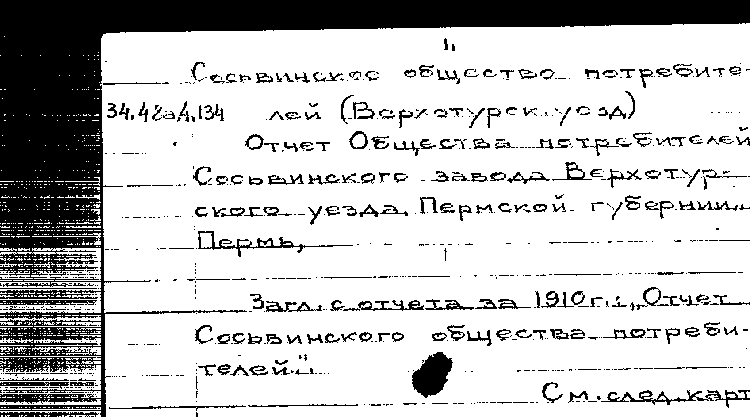 1.
Сосьвинское общество потребите-
34.48а/4.134 лей (Верхотурск. уезд)
Отчет Общества потребителей
Сосьвинского завода Верхотур-
ского уезда, Пермской губернии...
Пермь,
Загл. с отчета за 1910 г.: „Отчет
Сосьвинского общества потреби-
телей."
См. след. карт